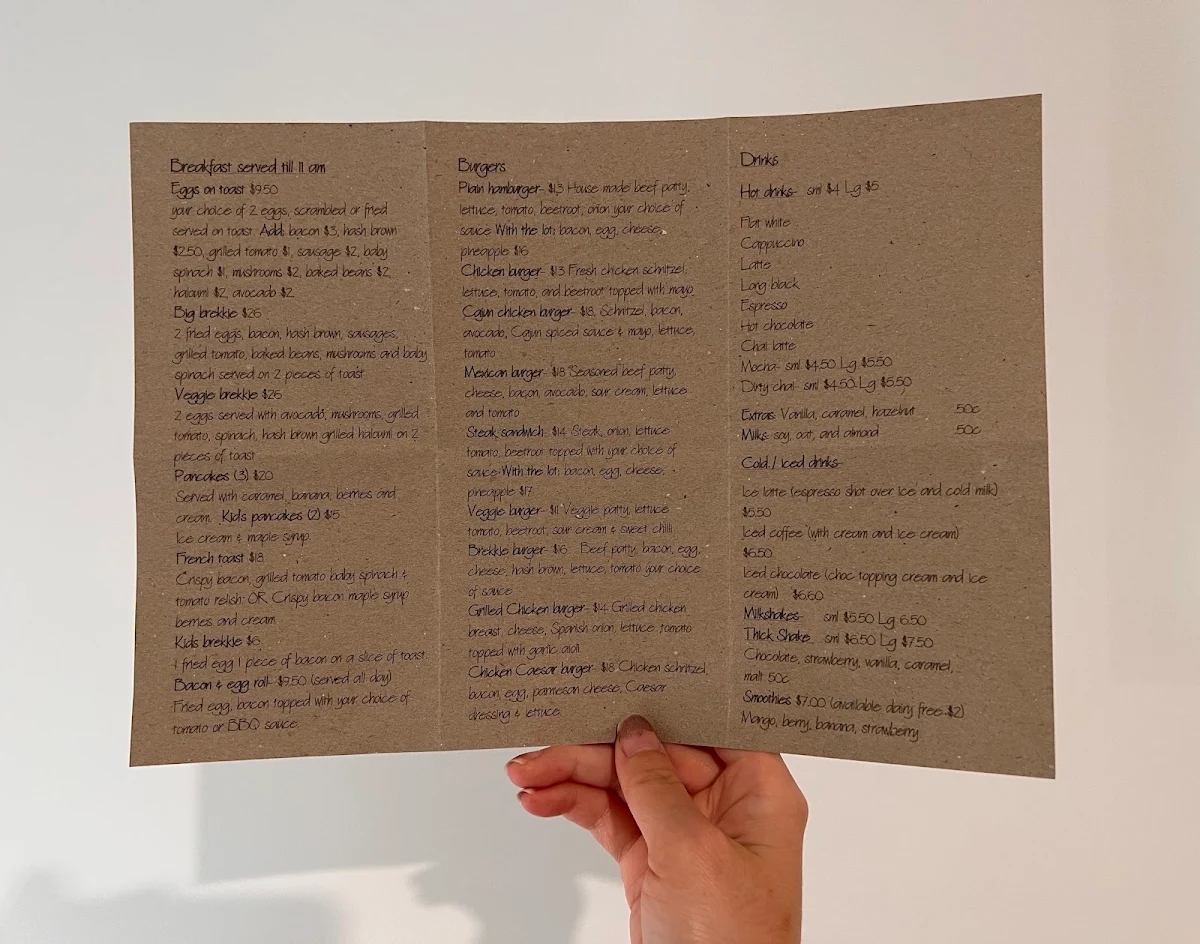 Breakfast served till 11 am
Eggs on toast $9.50
your choice of 2 eggs, scrambled or fried
served on toast. Add: bacon $3, hash brown
$2.50, grilled tomato $1, sausage $2, baby
spinach $1, mushrooms $2, baked beans $2,
haloumi $2, avocado $2
Big brekkie $26
2 fried eggs, bacon, hash brown, sausages,
grilled tomato, baked beans, mushrooms and baby
spinach served on 2 pieces of toast
Veggie brekkie $26
2 eggs served with avocado, mushrooms, grilled
tomato, spinach, hash brown grilled haloumi on 2
pieces of toast
Pancakes (3) $20
Served with caramel, banana, berries and
cream. Kids pancakes (2) $15
Ice cream & maple syrup
French toast $18
Crispy bacon, grilled tomato baby spinach &
tomato relish: OR Crispy bacon maple syrup
berries and cream
Kids brekkie $6
1 fried egg 1 piece of bacon on a slice of toast
Bacon & egg roll- $9.50 (served all day)
Fried egg, bacon topped with your choice of
tomato or BBQ sauce
Burgers
Plain hamburger- $13 House made beef patty,
lettuce, tomato, beetroot, onion your choice of
sauce With the lot; bacon, egg, cheese,
pineapple $16
Chicken burger- $13 Fresh chicken schnitzel,
lettuce, tomato, and beetroot topped with mayo
Cajun chicken burger- $18, Schnitzel, bacon,
avocado, Cajun spiced sauce & mayo, lettuce,
tomato
Mexican burger- $18 Seasoned beef patty,
cheese, bacon, avocado, sour cream, lettuce
and tomato
Steak sandwich- $14 Steak, onion, lettuce
tomato, beetroot topped with your choice of
sauce-With the lot; bacon, egg, cheese,
pineapple $17
Veggie burger- $11 Veggie patty, lettuce
tomato, beetroot, sour cream & sweet chilli
Brekkie burger- $16 Beef patty, bacon, egg,
cheese, hash brown, lettuce, tomato your choice
of sauce
Grilled Chicken burger- $14 Grilled chicken
breast, cheese, Spanish onion, lettuce, tomato
topped with garlic aioli
Chicken Caesar burger- $18 Chicken schnitzel,
bacon, egg, parmesan cheese, Caesar
dressing & lettuce
Drinks
Hot drinks- sml $4 Lg $5
Flat white
Cappuccino
Latte
Long black
Espresso
Hot chocolate
Chai latte
Mocha- sml $4.50 Lg $5.50
Dirty chai- sml $4.50 Lg $5.50
Extras: Vanilla, caramel, hazelnut 50c
Milks: soy, oat, and almond 50c
Cold / Iced drinks-
Ice latte (espresso shot over ice and cold milk)
$5.50
Iced coffee (with cream and ice cream)
$6.50
Iced chocolate (choc topping cream and ice
cream) $6.60
Milkshakes- sml $5.50 Lg 6.50
Thick Shake sml $6.50 Lg $7.50
Chocolate, strawberry, vanilla, caramel,
malt 50c
Smoothies $7.00 (available dairy free $2)
Mango, berry, banana, strawberry